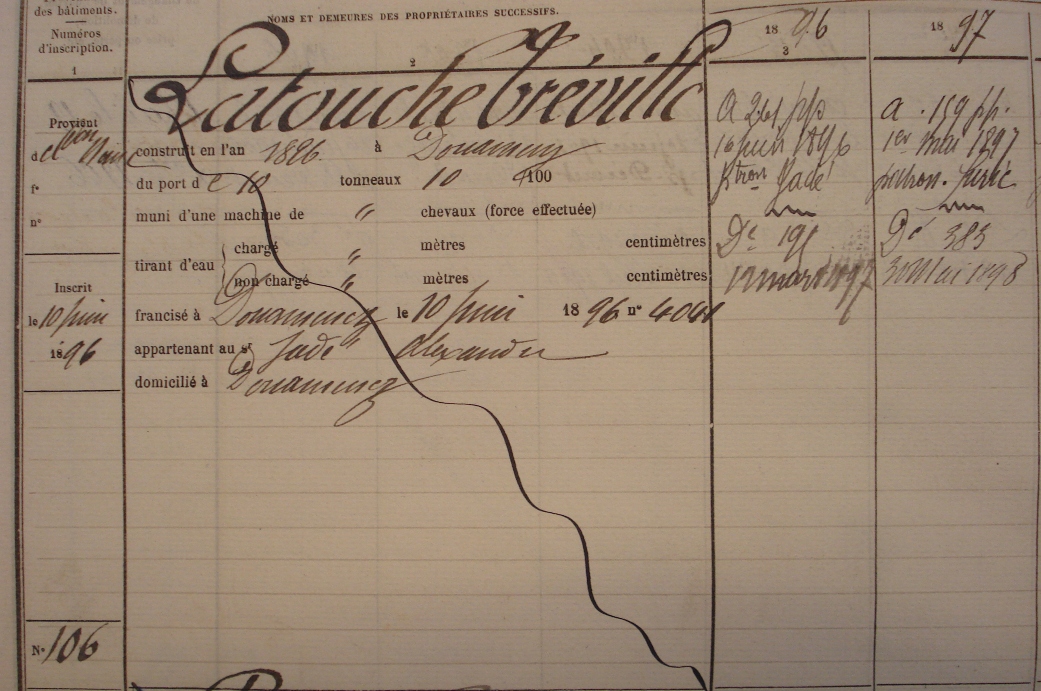 des bâtiments.
Numéros
d'inscription.
1
NOMS ET DEMEURES DES PROPRIÉTAIRES SUCCESSIFS.
2
1896
3
1897
Latouche Tréville
Provient
d
fº
nº
construit en l'an 1896 à Douarnenez
du port de 10 tonneaux 10 /100
muni d'une machine de " chevaux (force effectuée)
tirant d'eau
chargé " mètres centimètres
non chargé " mètres centimètres
Inscrit
le 10 juin
1896
francisé à Douarnenez le 10 juin 1896 nº 4041
appartenant au sr Jadé Alexandre
domicilié à Douarnenez
A 261 pp
16 juin 1896
ptron Jadé
Dc 195
12 mars 1897
a. 159 pp.
1er mai 1897
patron.
Dc 383
30 Mai 1898
Nº 106